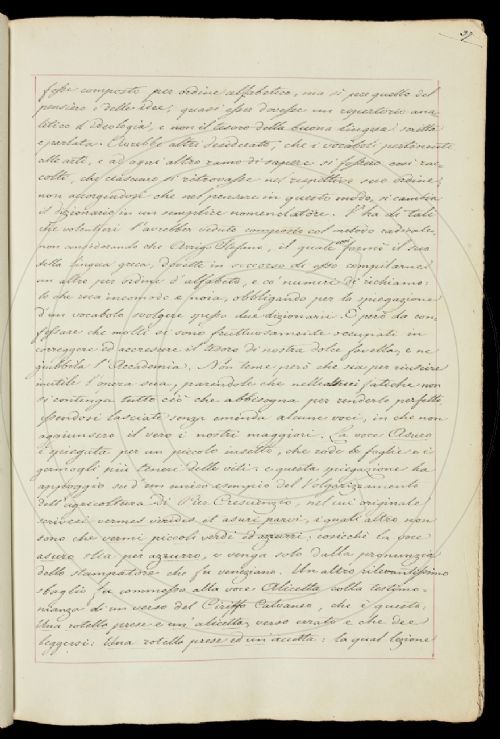 37
fosse composto per ordine alfabetico, ma si per quello del
pensiero e delle idee, quasi esser dovesse un repertorio ana-
litico d'Ideologia, e non il tesoro della buona lingua scritta
e parlata. Avrebbe altri desiderato, che i vocaboli pertinenti
alle arti, e ad ogni altro ramo di sapere si fossero così rac-
colti, che ciascuno si ritrovasse nel rispettivo suo ordine;
non accorgendosi che nel pensare in questo modo, si cambia
il dizionario in un semplice nomenclatore. V'ha di tali
che volentieri l'avrebber veduto composto col metodo radicale,
non considerando che Arrigo Stefano, il quale così formò il suo
della lingua greca, dovette in soccorso di esso compilarne
un altro per ordine d'alfabeto, e co' numeri di richiamo:
lo che reca incomodo e noia, obbligando per la spiegazione
d'un vocabolo svolgere spesso due dizionarii. È però da con-
fessare che molti si sono fruttuosamente occupati in
correggere ed accrescere il tesoro di nostra dolce favella, e ne
giubbila l'Accademia. Non teme però che sia per riuscire
inutile l'opera sua, parendole che nelle altrui fatiche non
si contenga tutto ciò che abbisogna per renderlo perfetto
essendosi lasciate senza emenda alcune voci, in che non
aggiunsero il vero i nostri maggiori. La voce Asuro
è spiegata per un piccolo insetto, che rode le foglie e i
germogli più teneri delle viti: e questa spiegazione ha
appoggio su d'un unico esempio del Volgarizzamento
dell'agricoltura di Pier Crescenzio, nel cui originale
scrivesi vermes virides et asuri parvi, i quali altro non
sono che vermi piccoli verdi ed azzurri, cosichè la voce
asuro stia per azzurro, e venga solo dalla pronunzia
dello stampatore che fu veneziano. Un altro rilevantissimo
sbaglio fu commesso alla voce Alicetta colla testimo-
nianza di un verso del Ciriffo Calvaneo, che è questo:
Una rotella prese e un'alicetta, verso errato e che dee
leggersi: Una rotella prese ed un'accetta: la qual lezione